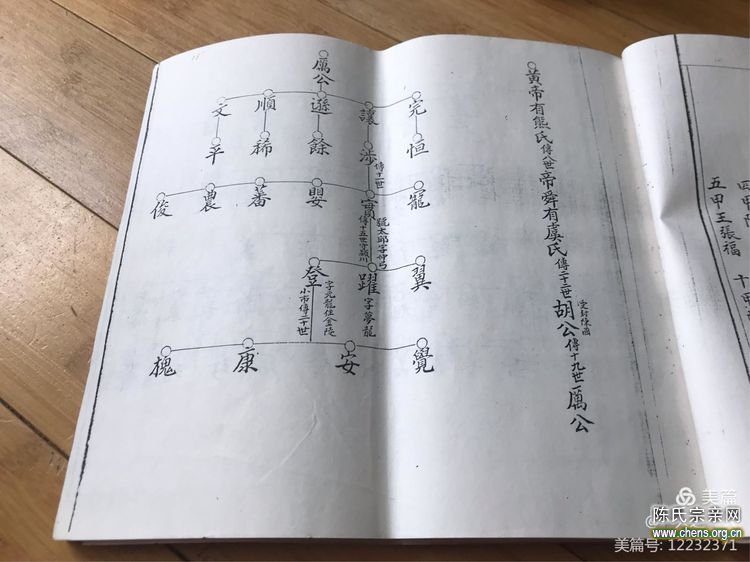 黃帝有熊氏傳八世帝舜有虞氏傳二十三世胡公受封陳國傳十九世厲公
厲公
完 讓 遜 順 文
恒 涉 餘 稀 平
傳十一世
寵 實 嬰 蕃 農 俊
號太郎字仲弓
傳十五世官潁川
翼 躍 登
字夢龍
字元龍住金陵
小市傳二十世
覺 安 康 槐
五甲王張福
美篇
陈氏宗亲网
www.chens.org.cn
美篇号: 12232371